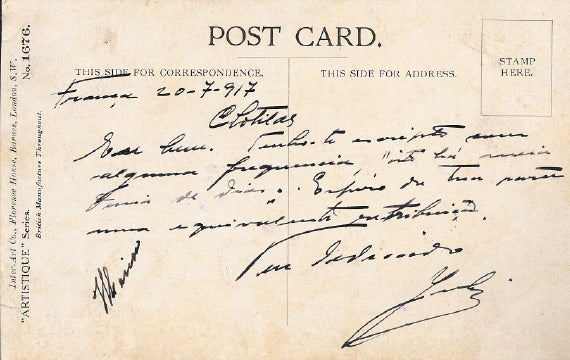 POST CARD.
THIS SIDE FOR CORRESPONDENCE.
THIS SIDE FOR ADDRESS.
STAMP
HERE.
França 20-7-917
Clotilde
Eu bem. Tenho-te escripto com
alguma frequencia, "isto há meia
duzia de dias". Espero da tua parte
uma equivalente retribuição.
Teu dedicado
Inter-Art Co., Florence House, Barnes, London, S.W.
"ARTISTIQUE" Series. No. 1676.
British Manufacture Throughout.